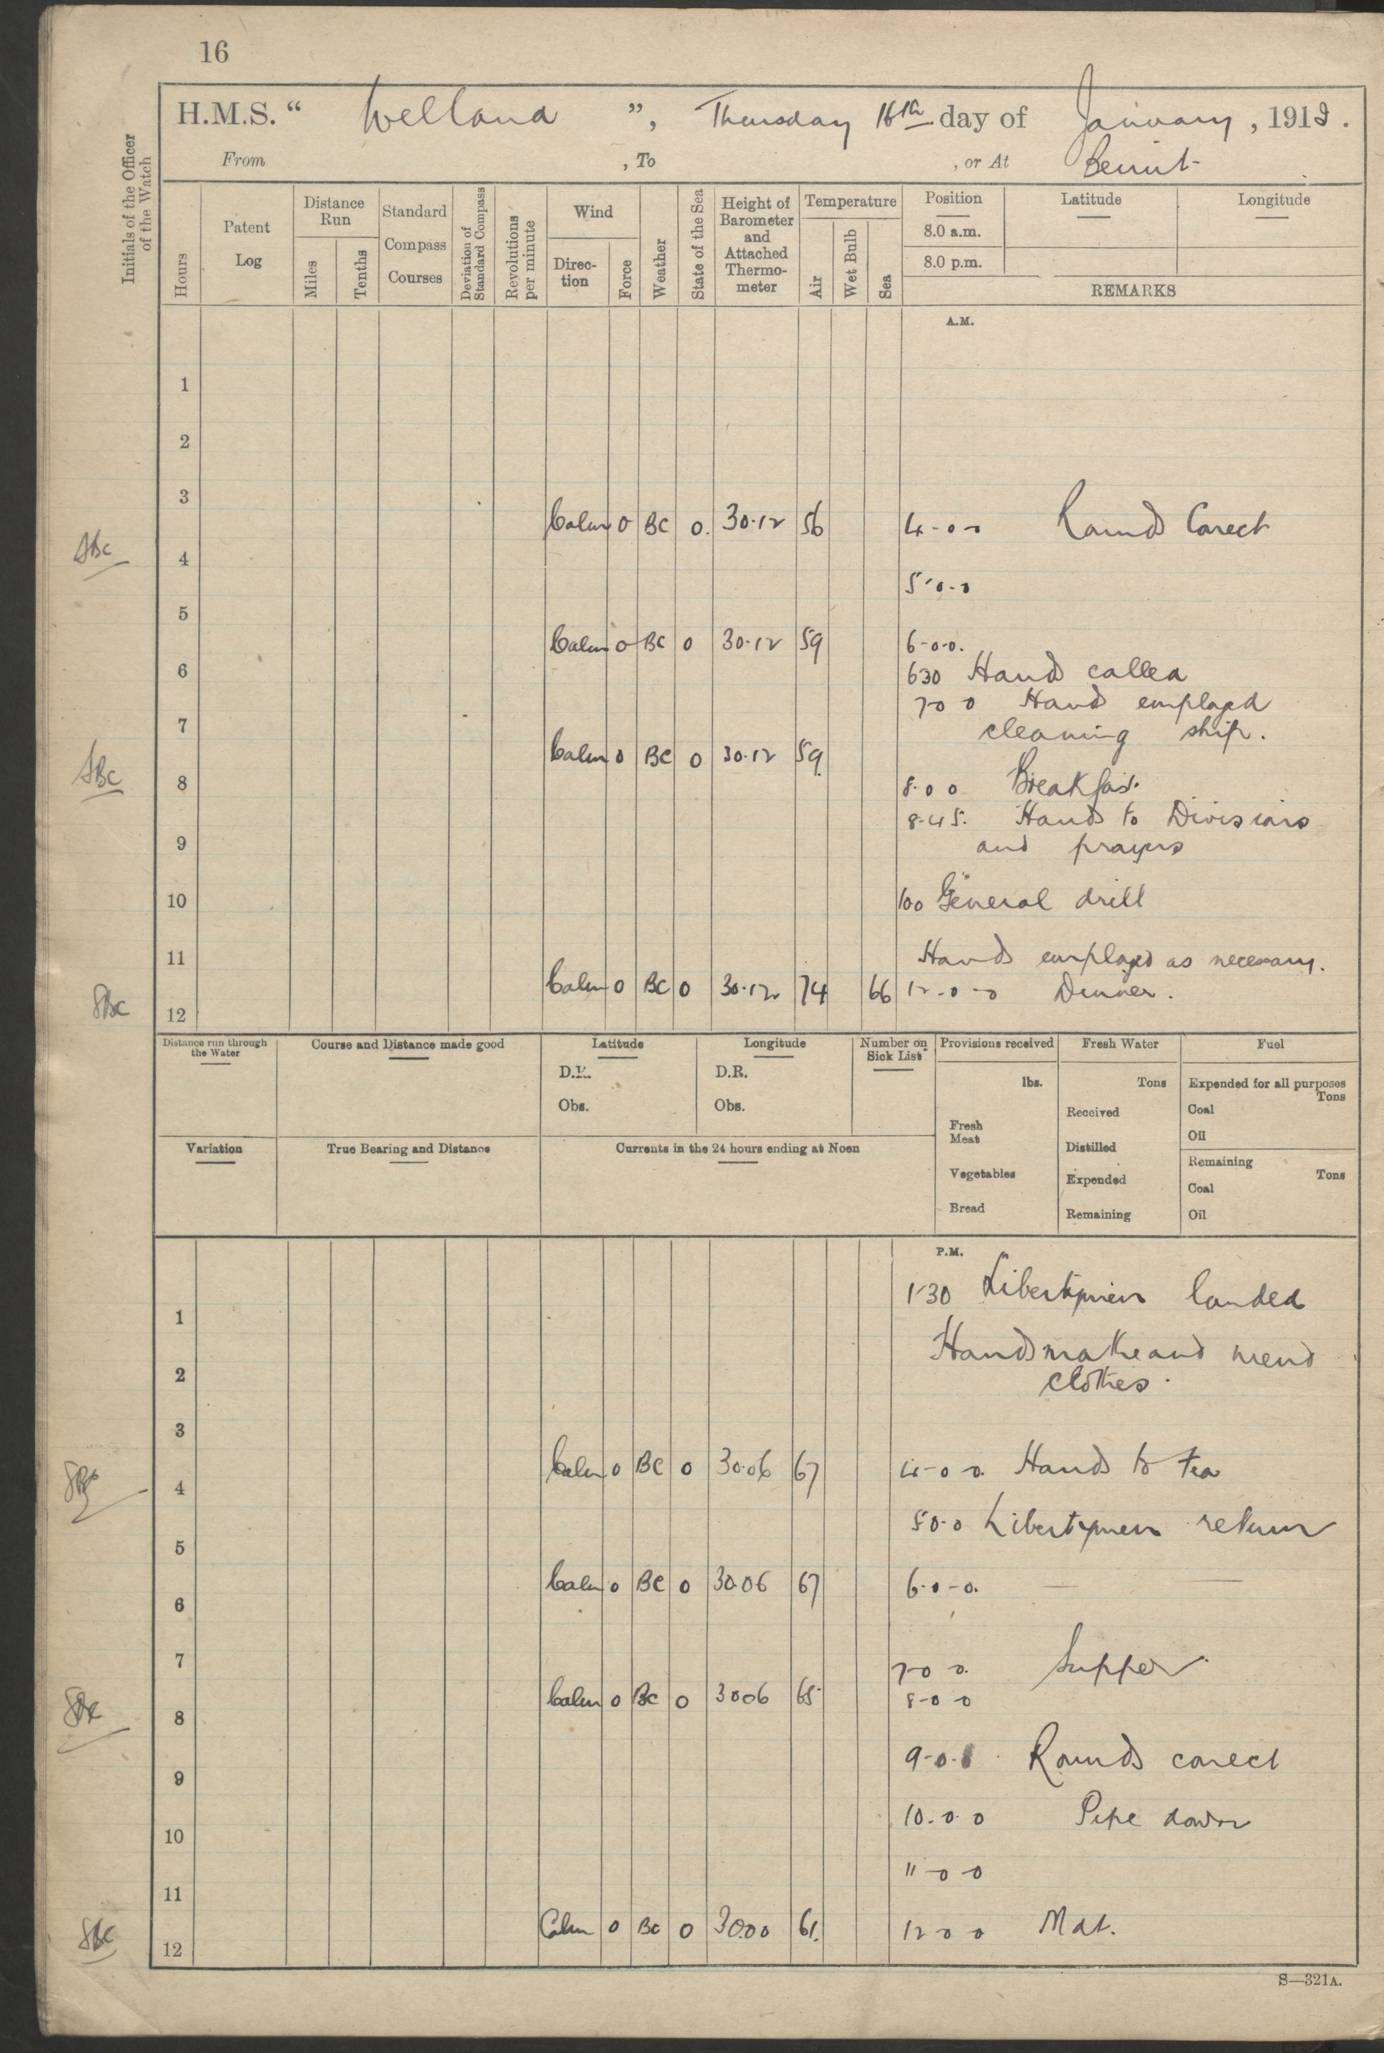 16
H.M.S. “ Welland ”, Thursday 16th day of January, 1919.
From , To , or At Beirut
Initials of the Officer of the Watch
Hours
Patent Log
Distance Run
Miles
Tenths
Standard Compass Courses
Deviation of Standard Compass
Revolutions per minute
Wind
Direction
Force
Weather
State of the Sea
Height of Barometer and Attached Thermometer
Temperature
Air
Wet Bulb
Sea
Position
8.0 a.m.
8.0 p.m.
Latitude
Longitude
REMARKS
A.M.
1
2
3
Calm 0 BC 0. 30.12 56 4-0-0 Rounds Corect
SBC 4
5-0-0
5
Calm 0 BC 0 30.12 59 6-0-0.
6 630 Hands called
7-0 0 Hands employed
7 cleaning ship.
Calm 0 BC 0 30.12 59.
SBC 8 8-0 0 Breakfast.
8-45. Hands to Divisions
9 and prayers
10 100 General drill
11 Hands employed as necessary.
Calm 0 BC 0 30.12 74 66 12-0-0 Dinner.
SBC 12
Distance run through the Water
Course and Distance made good
Latitude
D.R.
Obs.
Longitude
D.R.
Obs.
Number on Sick List
Provisions received
lbs.
Fresh Meat
Vegetables
Bread
Fresh Water
Tons
Received
Distilled
Expended
Remaining
Fuel
Expended for all purposes
Tons
Coal
Oil
Remaining
Tons
Coal
Oil
Variation
True Bearing and Distance
Currents in the 24 hours ending at Noon
P.M.
1-30 Libertymen landed
1
Hands make and mend
2 clothes.
3
Calm 0 BC 0 30.06 67 4-0 0. Hands to tea
SBC 4
5-0-0 Libertymen return
5
Calm 0 BC 0 30.06 67 6-0-0.
6
7 7-0 0. Supper
Calm 0 BC 0 3006 65 8-0 0
SBC 8
9-0-0 Rounds corect
9
10 10.0 0 Pipe down
11-0 0
11
Calm 0 BC 0 30.00 61. 12 0 0 Mdt.
SBC 12
S—321A.